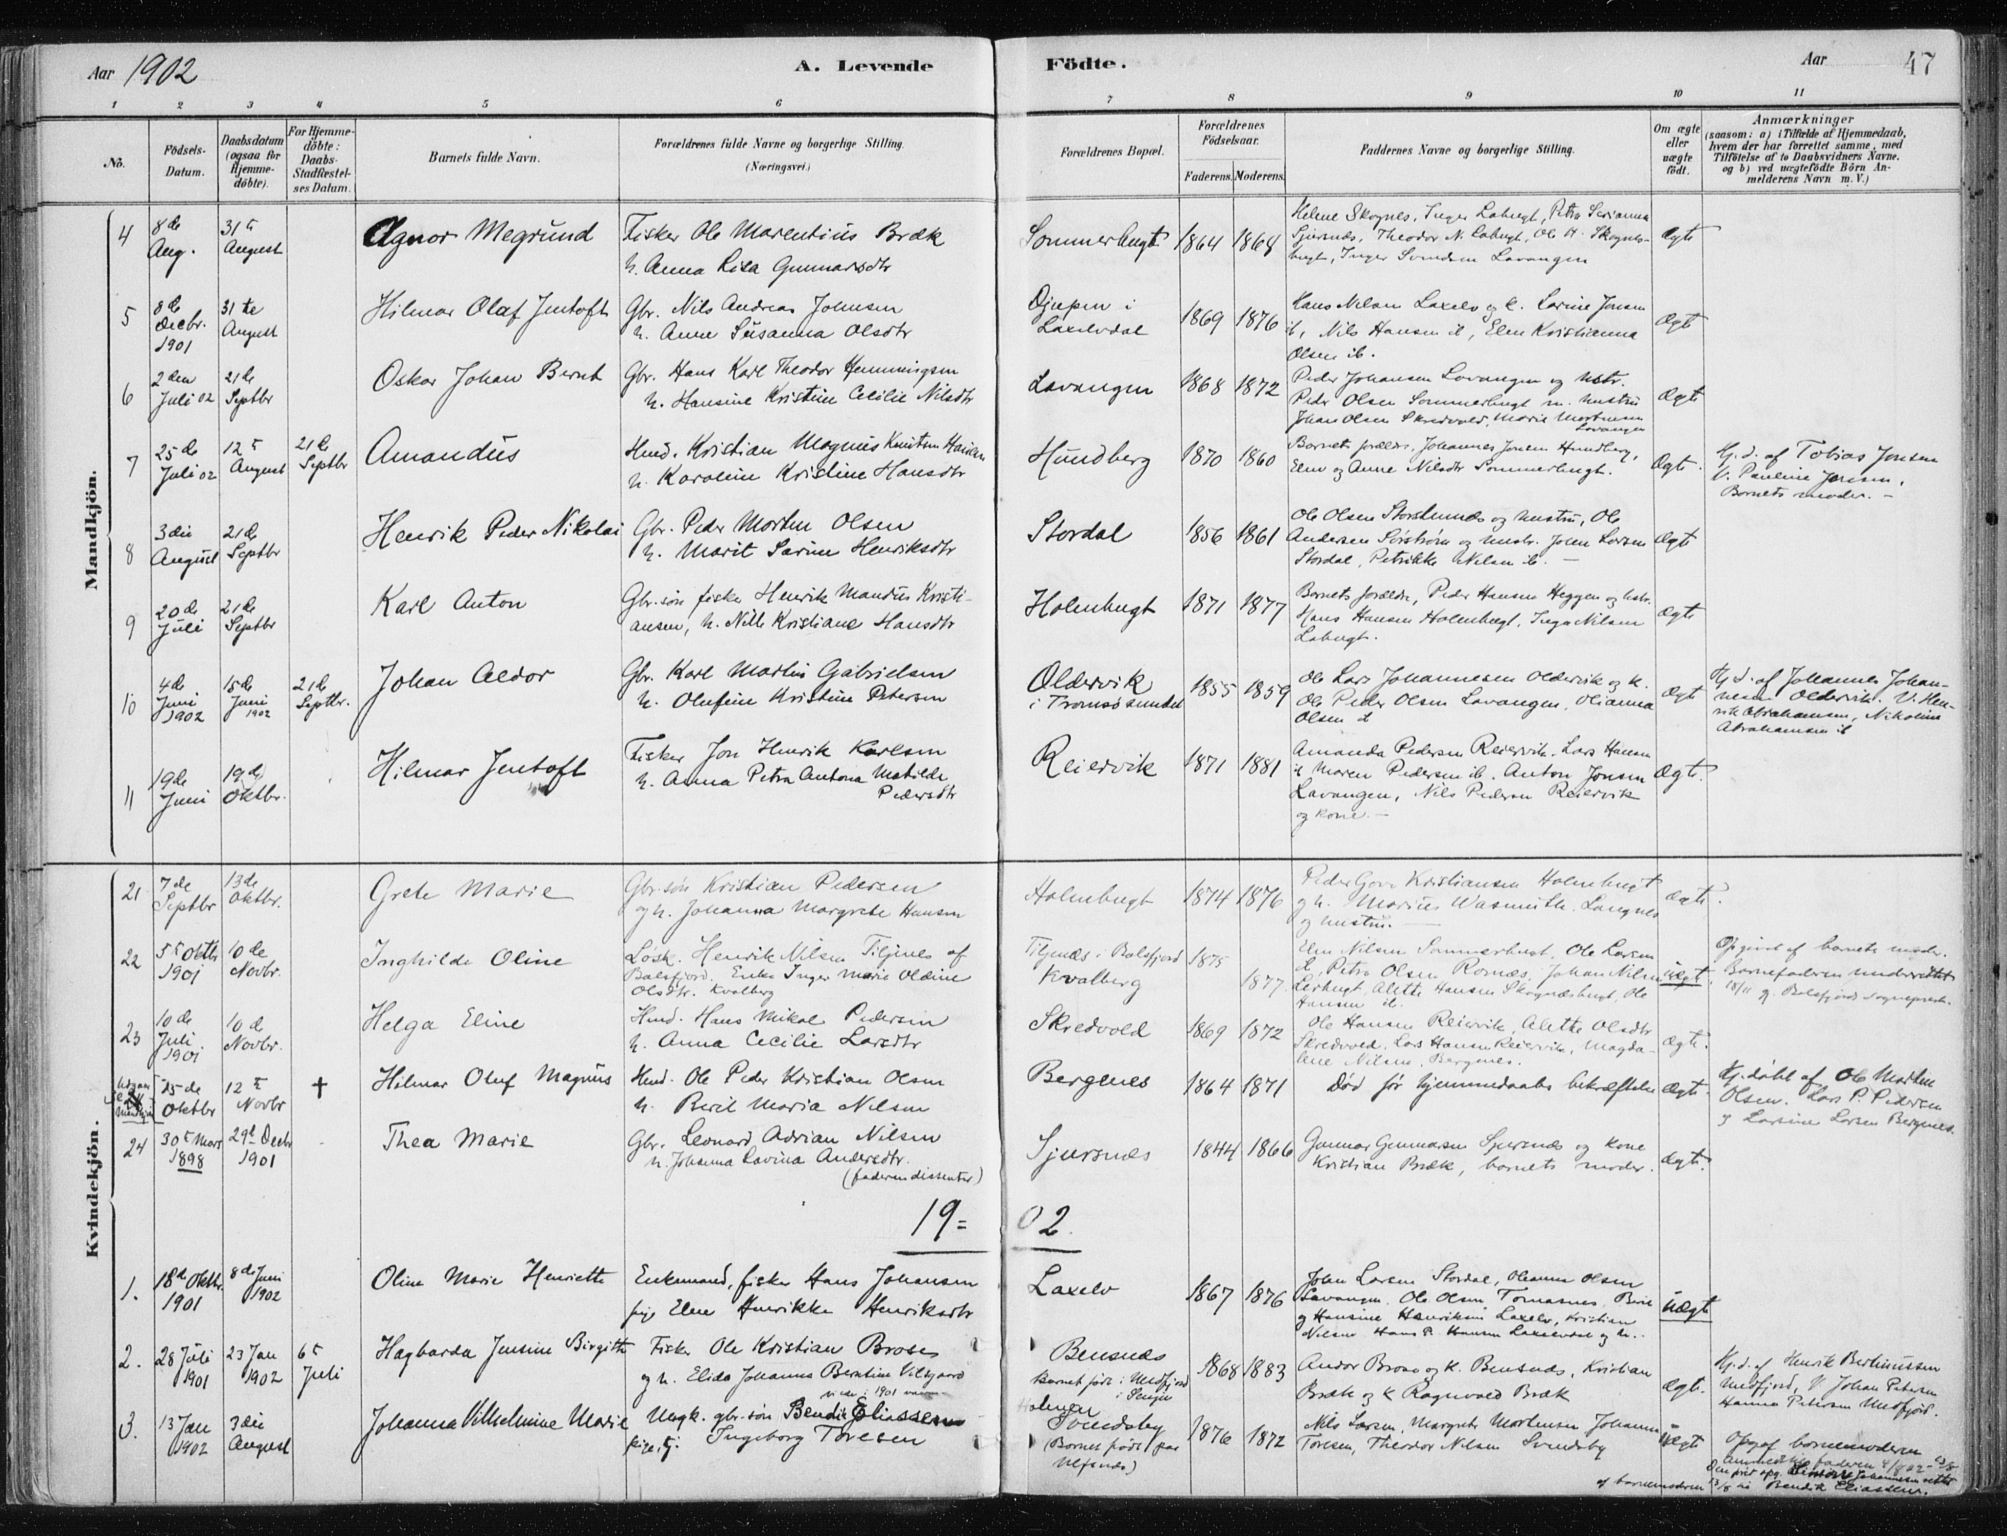 Aar 1902
A. Levende
Födte.
Aar
47
1 2 3 4 5 6 7 8 9 10 11
No.
Födsels-Datum.
Daabsdatum (ogsaa for Hjemme-döbte).
For Hjemme-döbte: Daabs-Stadfæstel-ses Datum.
Barnets fulde Navn.
Forældrenes fulde Navne og borgerlige Stilling.
(Næringsvei.)
Forældrenes Bopæl.
Forældrenes Födselsaar.
Faderens. Moderens.
Faddernes Navne og borgerlige Stilling.
Om ægte eller uægte födt.
Anmærkninger
(saasom: a) i Tilfælde af Hjemmedaab,
hvem der har forrettet samme, med
Tilföielse af to Daabsvidners Navne.
og b) ved uægtefödte Börn An-
melderens Navn m. V.)
Mandkjön.
4 8de Aug. 31te August Agnor Megrund
Fisker Ole Marentius Bræk
h. Anna Lisa Gunnarsdtr
Sommerbugt 1864 1864
Helene Skognes, Inger Labugt, Petra Serianna
Sjursnæs, Theodor N. Labugt, Ole H. Skognes-
bugt, Inger Svendsen Lavangen
Ægte
5 8de Decbr. 1901 31te August Hilmar Olaf Jentoft
Gbr. Nils Andreas Johnsen
h. Anne Susanna Olsdtr
Djupen i Laxelvdal 1869 1876
Hans Nilsen Laxelv og k. Larine Jensen
ib, Nils Hansen ib, Elen Kristianna
Olsen ib.
Ægte
6 2den Juli 02 21de Septbr Oskar Johan Bernt
Gbr. Hans Karl Theodor Hemmingsen
h. Hansine Kristine Cecilie Nilsdtr
Lavangen 1868 1872
Peder Johansen Lavangen og hstr.
Peder Olsen Sommerbugt m. hustru
Johan Olsen Skredvold, Marit Mortensen
Lavangen
Ægte
7 25de Juli 02 12te August 21de Septbr Amandus
Hmd. Kristian Magnus Knutsen Hansen
h. Karoline Kristine Hansdtr
Hundberg 1870 1860
Barnets forældre, Johannes Jonsen Hundberg,
Elen og Anne Nilsdtr Sommerbugt.
Ægte.
Hj. d. af Tobias Jensen
V. Pauline Jensen,
Barnets moder. -
8 3die August 21de Septbr Henrik Peder Nikolai
Gbr. Peder Morten Olsen
h. Marit Sarine Henriksdtr
Stordal 1856 1861
Ole Olsen Storstennes og hustru, Ole
Andersen Sörström og hustr. Johan Larsen
Stordal, Petrikke Nilsen ib. -
Ægte
9 20de Juli 21de Septbr Karl Anton
Gbr. sön fisker Henrik Mandus Kristi-
ansen, h. Nille Kristiane Hansdtr
Holmbugt 1871 1877
Barnets forældre, Peder Hansen Heggen og hstr.
Hans Hansen Holmbugt. Inga Nilsen
Labugt.
Ægte
10 4de Juni 1902 15de Juni 1902 21de Septbr. Johan Aldor
Gbr. Karl Martin Gabrielsen
h. Olufine Kristine Petersen
Oldervik i Tromsösundet 1855 1859
Ole Lars Johannesen Oldervik og k.
Ole Peder Olsen Lavangen, Olianna
Olsen ib
Ægte
Hj. d. af Johannes Johan-
nesen Oldervik. V. Hen-
rik Abrahamsen, Nikoline
Abrahamsen ib
11 19de Juni 19de Oktbr. Hilmar Jentoft
Fisker Jon Henrik Karlsen
h. Anna Petra Antona Matilde
Pedersdtr
Reiervik 1871 1881
Amanda Pedersen Reiervik. Lars Hansen
ib Maren Pedersen ib. Anton Jonsen
Lavangen, Nils Pedersen Reiervik
og kone. -
Ægte.
Kvindekjön.
21 7de Septbr 13de Oktbr. Grete Marie
Gbr. sön Kristian Pedersen
og h. Johanna Margrete Hansen
Holmbugt 1874 1876
Peder Gove Kristiansen Holmbugt
og h. Marius Wasmuth. Langnes
og hustru.
Ægte.
22 5te Oktbr 1901 10de Novbr. Inghilde Oline
Lösk. Henrik Nilsen Tiljnes af
Balsfjord, Enke Inger Marie Oldine
Olsdtr. Kvalberg
Tiljnæs i Balsfjord
Kvalberg 1875 1877
Elen Nilsen Sommerbugt, Ole Larsen
ib, Petra Olsen Rornæs, Johan Nilsen
Lerbugt, Alette Hansen Skognæsbugt, Ole
Hansen ib.
uægt.
Opgivet af barnets moder.
Barnefaderen underrettet
18/11 g. Balsfjords sogneprest.
23 10de Juli 1901 10de Novbr. Helga Eline
Hmd. Hans Mikal Pedersen
h. Anna Cecilie Larsdtr
Skredvold 1869 1872
Ole Hansen Reiervik, Alette Olsdtr
Skredvold. Lars Hansen Reiervik, Magda-
lene Nilsen, Bergenes.
Ægte.
25de Oktbr 12te Novbr † Hilmar Oluf Magnus
Hmd. Ole Peder Kristian Olsen
h. Berit Maria Nilsen
Bergenes 1864 1871
Död för hjemmedaabs bekræftelse
Ægte.
Hj. döbt af Ole Morten
Olsen. Lars P. Pedersen
og Larsine Larsen Bergenes.
24 30te Mars 1898 29de Decbr 1901 Thea Marie
Gbr. Leonard Adrian Nilsen
h. Johanna Lavina Andersdtr.
(faderen dissenter)
Sjursnæs 1844 1866
Gunnar Gunnarsen Sjursnæs og kone
Kristian Bræk, barnets moder.
Ægte.
19=02.
1. 18de Oktbr. 1901 8de Juni 1902 Oline Marie Henriette
Enkemand, fisker Hans Johansen
pige Elen Henrikke Henriksdtr
Laxelv 1867 1876
Johan Larsen Stordal, Oleanna Olsen
Lavangen. Ole Olsen Tomasnes, Berit
og Hansine Henriksen Laxelv, Kristian
Nilsen Hans P. Hansen Laxelvdal og h.
uægt
2. 28 Juli 1901 23 Jan 1902 6te Juli Hagbarda Jensine Birgitte
Fisker Ole Kristian Broses
og h. Elida Johannes Berntine Vilsgaard
Bensnæs
Barnet födt i Medfjord
i Senjen
1868 1883
Andor Brose og k. Bensnæs, Kristian
Bræk og k Ragnvald Bræk
Ægte.
Hj. d. af Henrik Berthinussen
Medfjord, V. Johan Petersen
Hanna Petersen Medfjord.
3. 13 Jan 1902 3die August Johanna Vilhelmine Marie
Ungk. gbr. sön Bendik Eliassen
pige Ingeborg Toresen
Holmen
Svendsby
(Barnet födt paa
Ulfsnæs)
1876 1872
Nils Larsen, Margrete Mortensen Johanna
Toresen, Theodor Nilsen Svendsby
uægte
Opg af barnemoderen
af barnemoderen Bendik Eliassen.